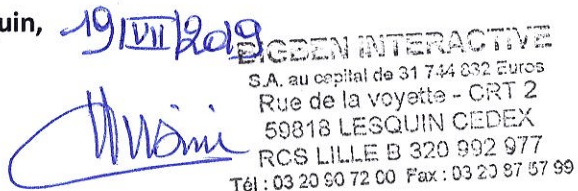 uin, 19/VII/2019
BIGBEN INTERACTIVE
S.A. au capital de 31 744 832 Euros
Rue de la voyette - CRT 2
59818 LESQUIN CEDEX
RCS LILLE B 320 992 977
Tél : 03 20 90 72 00 Fax : 03 20 87 57 99